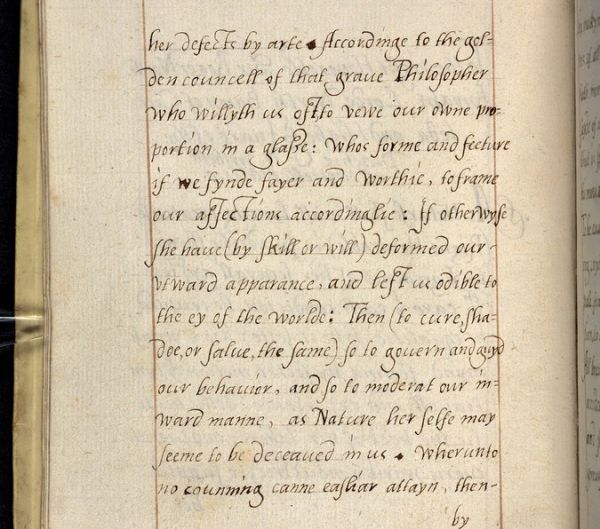 her defects by arte. Accordinge to the gol-
den councell of that grave Philosopher
who willyth us oft to vewe our owne pro-
portion in a glasse: whos forme and fecture
if we fynde fayer and worthie, to frame
our affections accordinglie: If otherwyse
she have (by skill or will) deformed our
utward apparance, and left us odible to
the ey of the worlde: Then (to cure, sha-
doe, or salve, the same) so to govern and guyd
our behavior, and so to moderat our in-
ward manne, as Nature her selfe may
seeme to be deceaved in us. Wherunto
no counning canne easliar attayn, then-
by